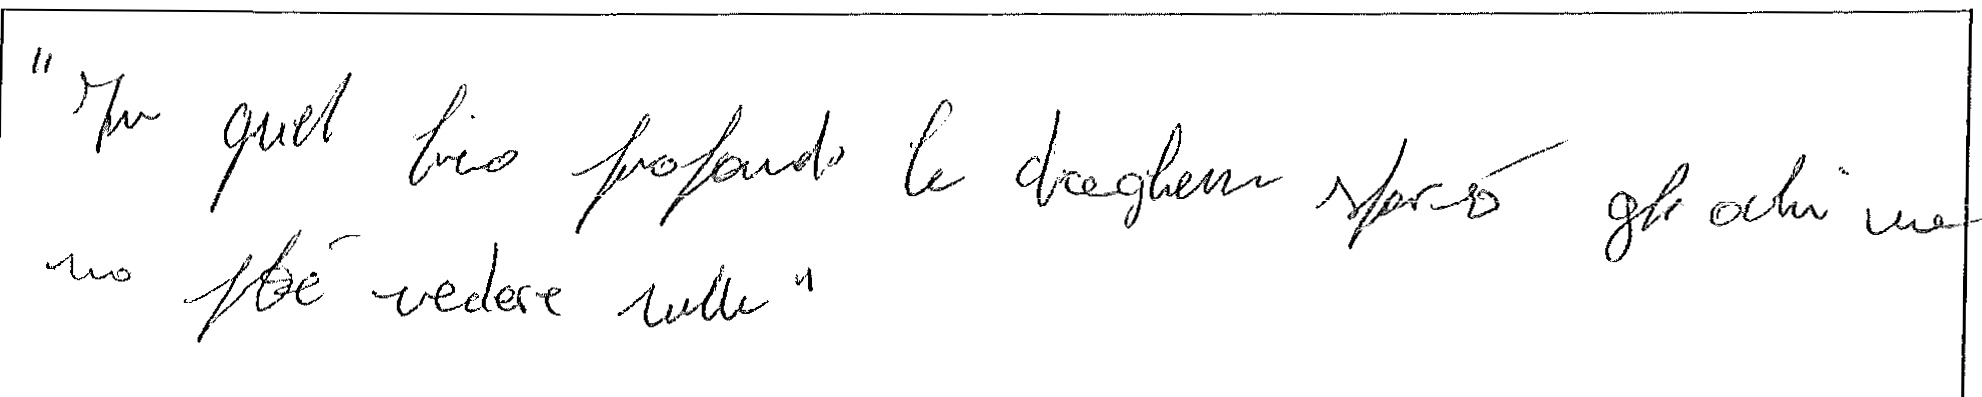 "In quel buio profondo la draghessa sforzò gli occhi ma
no poté vedere nulla"